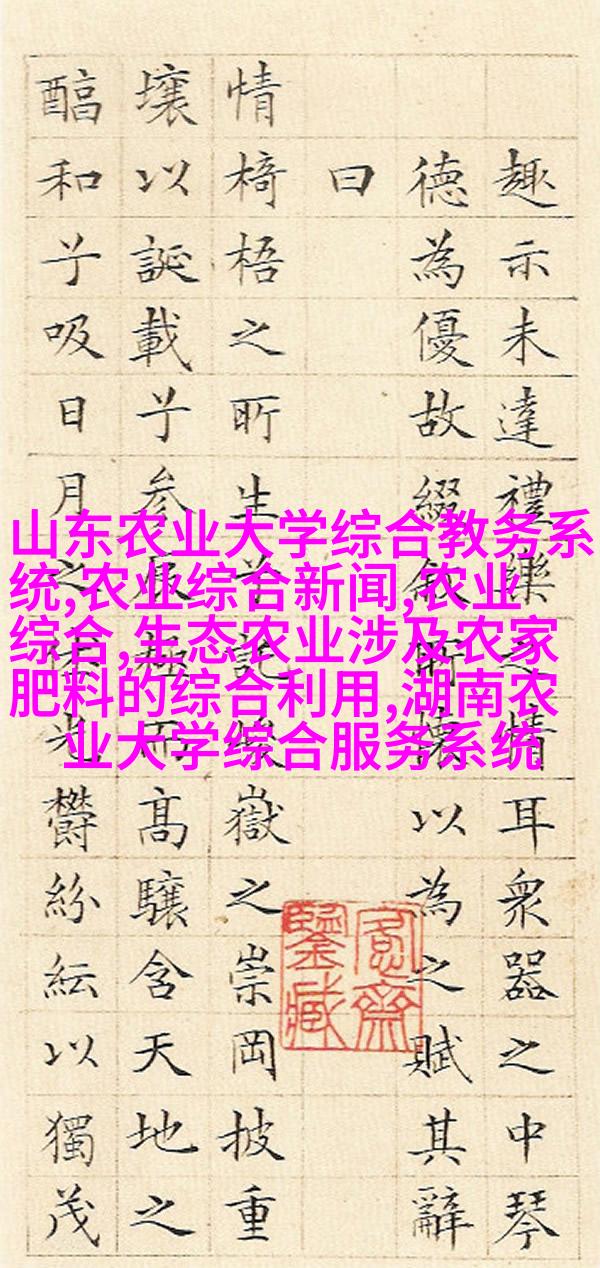 趣示未達禮樂之情耳衆器之中琴
德為優故綴敘所懷以為之賦其辭
曰
情椅梧之所生兮託峻嶽之崇岡披重
壤以誕載兮参辰極而高驤含天地之
醕和兮吸日月之休光鬱紛紜以獨茂
愙齋
鑒藏
山东农业大学综合教务系
统,农业综合新闻,农业
综合,生态农业涉及农家
肥料的综合利用,湖南农
业大学综合服务系统